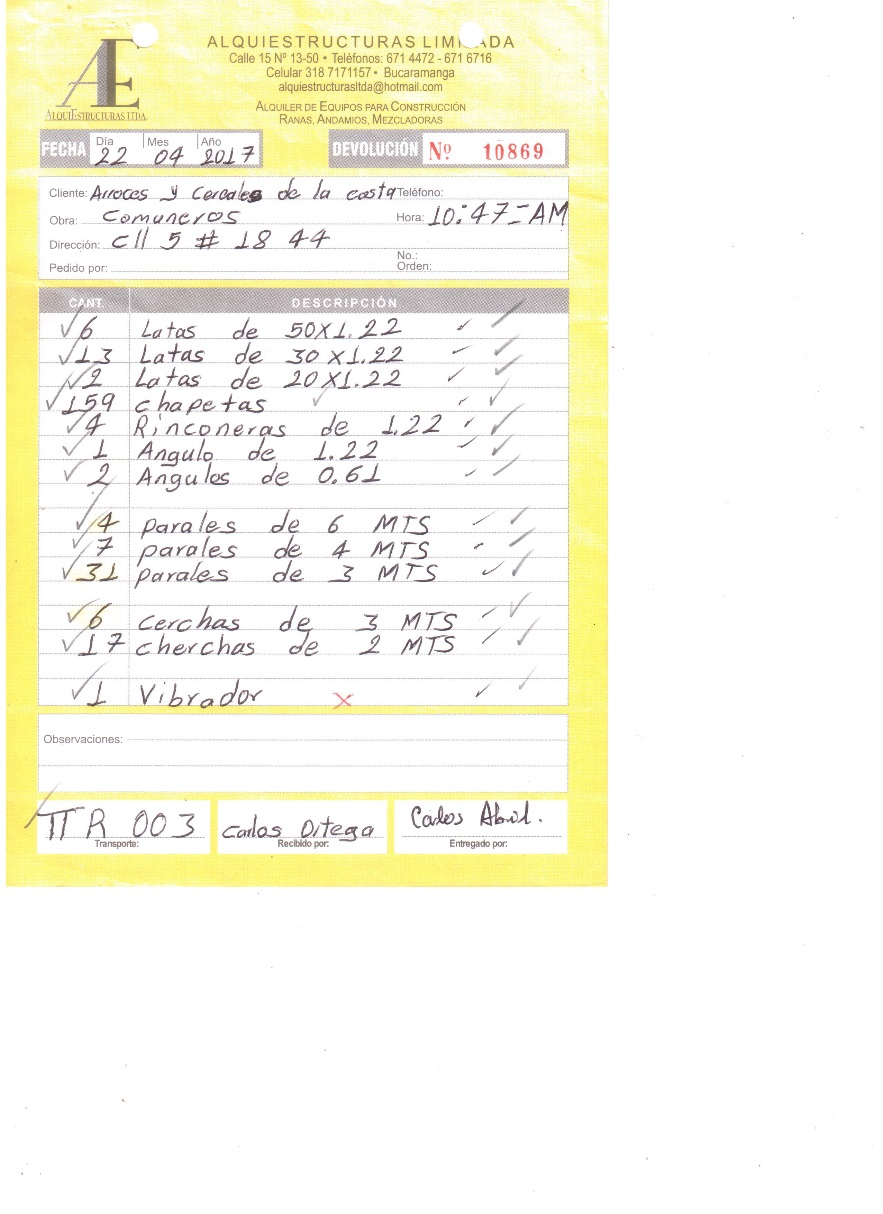 AE
ALQUIESTRUCTURAS LTDA.
ALQUIESTRUCTURAS LIMITADA
Calle 15 Nº 13-50 • Teléfonos: 671 4472 - 671 6716
Celular 318 7171157 • Bucaramanga
alquiestructurasltda@hotmail.com
ALQUILER DE EQUIPOS PARA CONSTRUCCIÓN
RANAS, ANDAMIOS, MEZCLADORAS
FECHA Día 22 Mes 04 Año 2017 DEVOLUCIÓN Nº 10869
Cliente: Arroces y Cereales de la costa Teléfono:
Obra: Comuneros Hora: 10:47-AM
Dirección: Cll 5 # 18 44
No.:
Pedido por: Orden:
CANT. DESCRIPCIÓN
6 Latas de 50X1.22
13 Latas de 30X1.22
2 Latas de 20X1.22
159 chapetas
4 Rinconeras de 1.22
1 Angulo de 1.22
2 Angulos de 0.61
4 parales de 6 MTS
7 parales de 4 MTS
31 parales de 3 MTS
6 cerchas de 3 MTS
17 cherchas de 2 MTS
1 Vibrador x
Observaciones:
TTR 003 Carlos Ortega Carlos Abril.
Transporte: Recibido por: Entregado por: